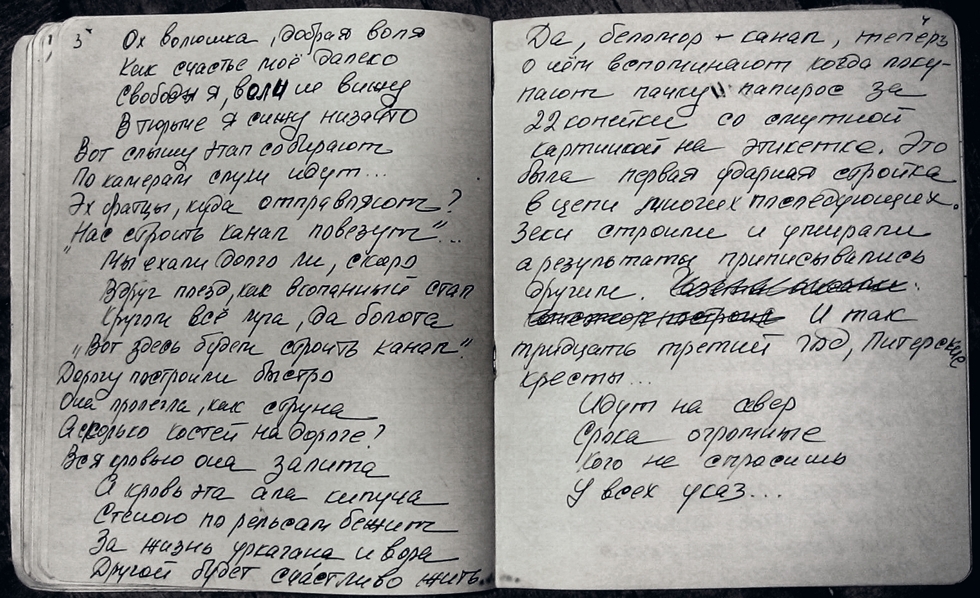 3
Ох волюшка, добрая воля
Как счастье моё далеко
Свободы я, воли не вижу
В тюрьме я сижу низашто
Вот слышу этап собирают
По камерам слухи идут...
Эх братцы, куда отправляют?
"Нас строить канал повезут"...
Мы ехали долго ли, скоро
Вдруг поезд, как вкопанный стал
Кругом всё луга, да болота
"Вот здесь будем строить канал"
Дорогу построили быстро
Она пролегла, как струна
А сколько костей на дороге?
Вся кровью она залита
А кровь эта ала кипуча
Стеною по рельсам бежит
За жизнь уркагана и вора
Другой будет счастливо жить.
4
Да, беломор + канал, теперь
о нём вспоминают когда поку-
пают пачку папирос за
22 копейки со смутной
картинкой на этикетке. Это
была первая ударная стройка
в цепи многих последующих.
Зеки строили и умирали
а результаты приписывались
другим.
И так
тридцать третий год, Питерские
кресты...
Идут на север
Срока огромные
Кого не спросишь
У всех указ...